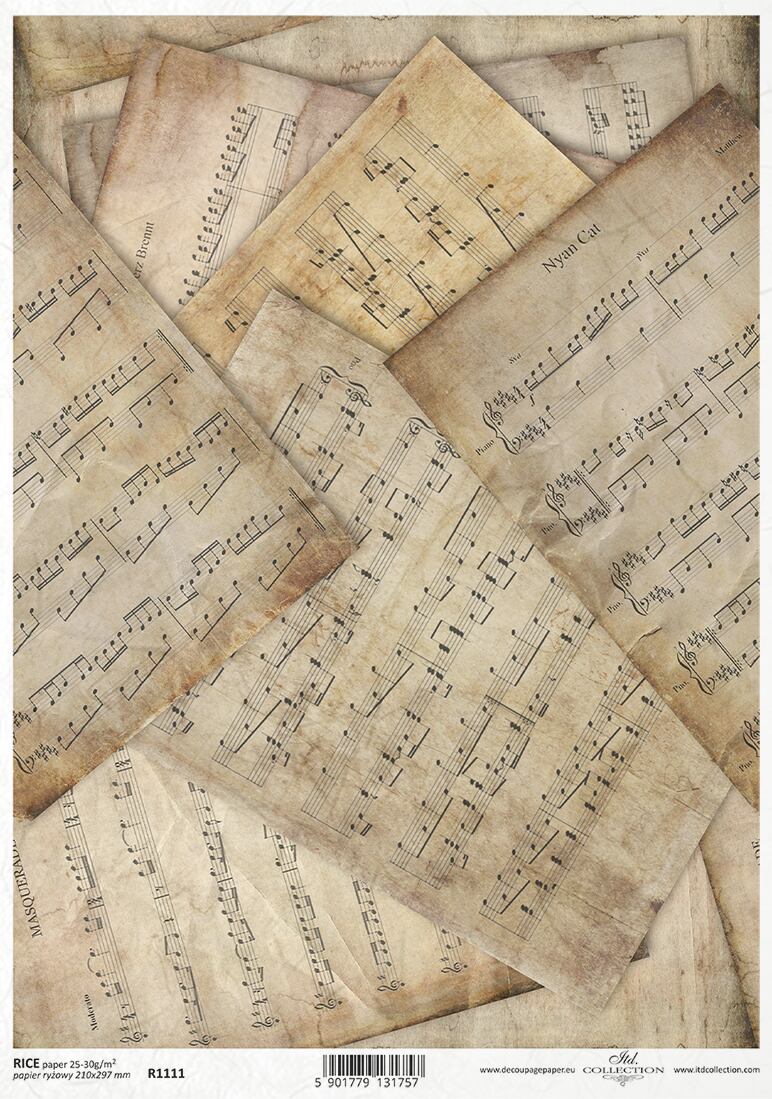 Matthew
erz Brennt
Nyan Cat
8va
8va
Piano
Pno.
Pno.
Pno.
Pno.
MASQUERADE
Moderato
DE
RICE paper 25-30g/m²
papier ryżowy 210x297 mm
R1111
5 901779 131757
www.decoupagepaper.eu
Itd.
COLLECTION
www.itdcollection.com